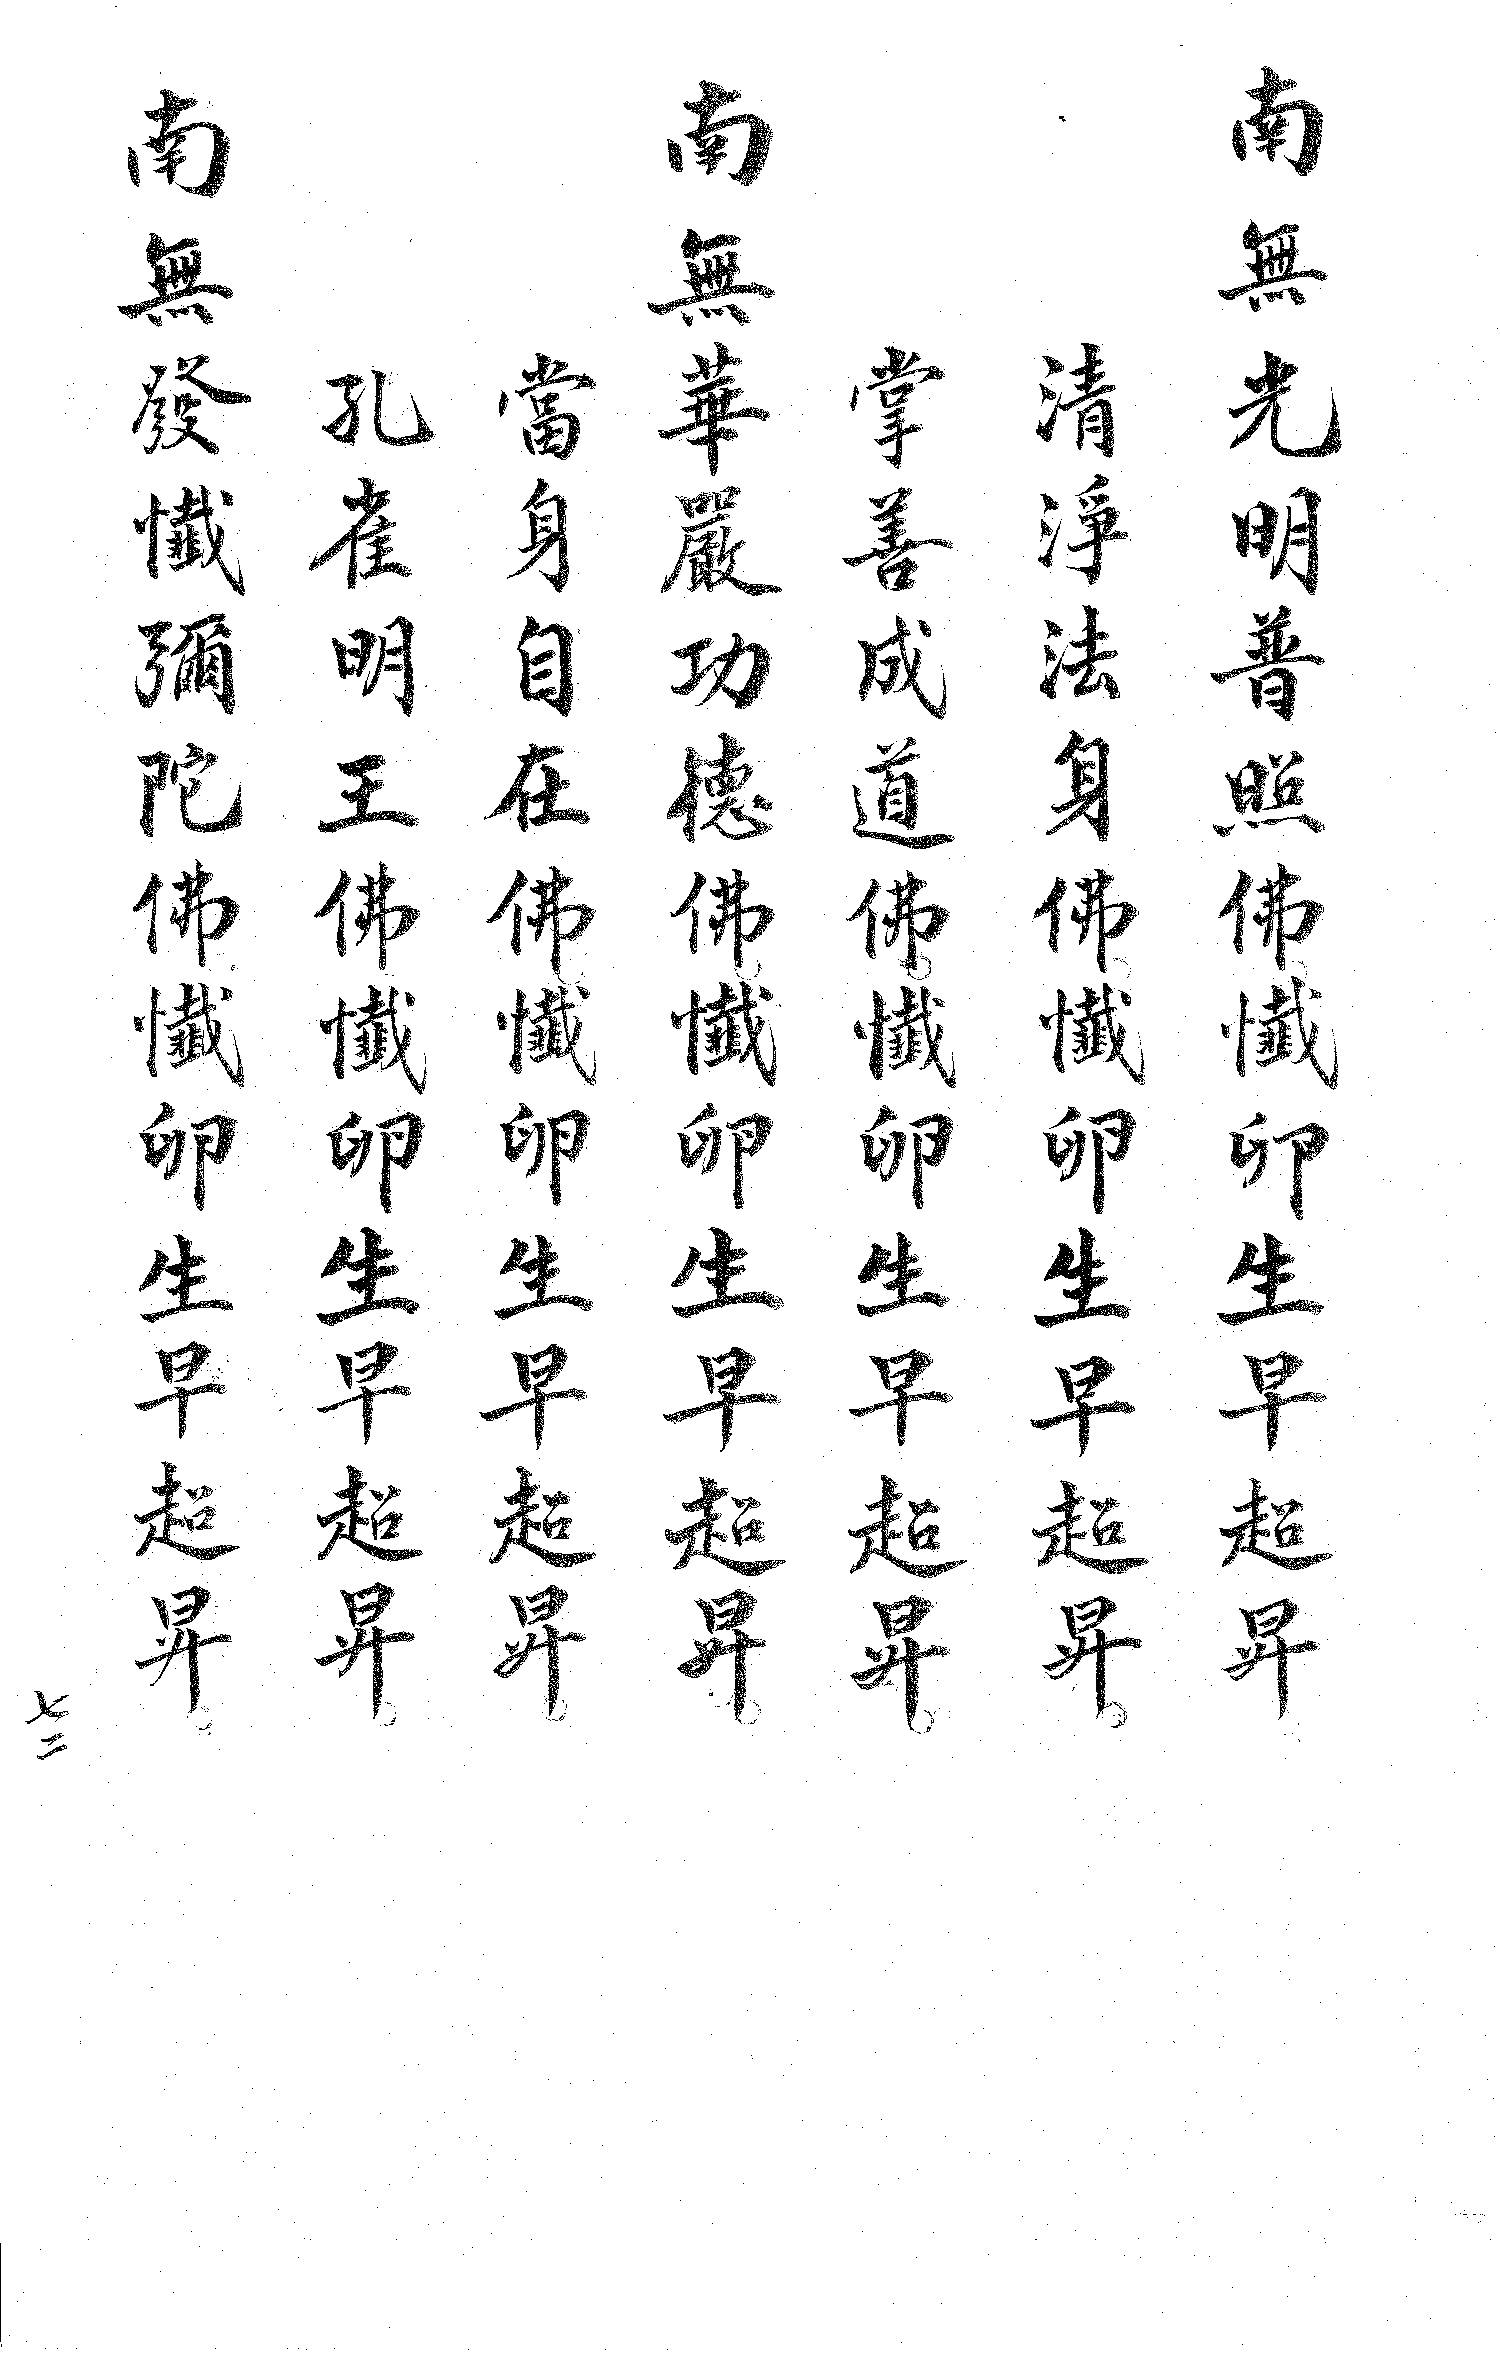 南無光明普照佛懺卵生早超昇
清淨法身佛懺卵生早超昇
掌善成道佛懺卵生早超昇
南無華嚴功德佛懺卵生早超昇
當身自在佛懺卵生早超昇
孔雀明王佛懺卵生早超昇
南無發懺彌陀佛懺卵生早超昇
七二